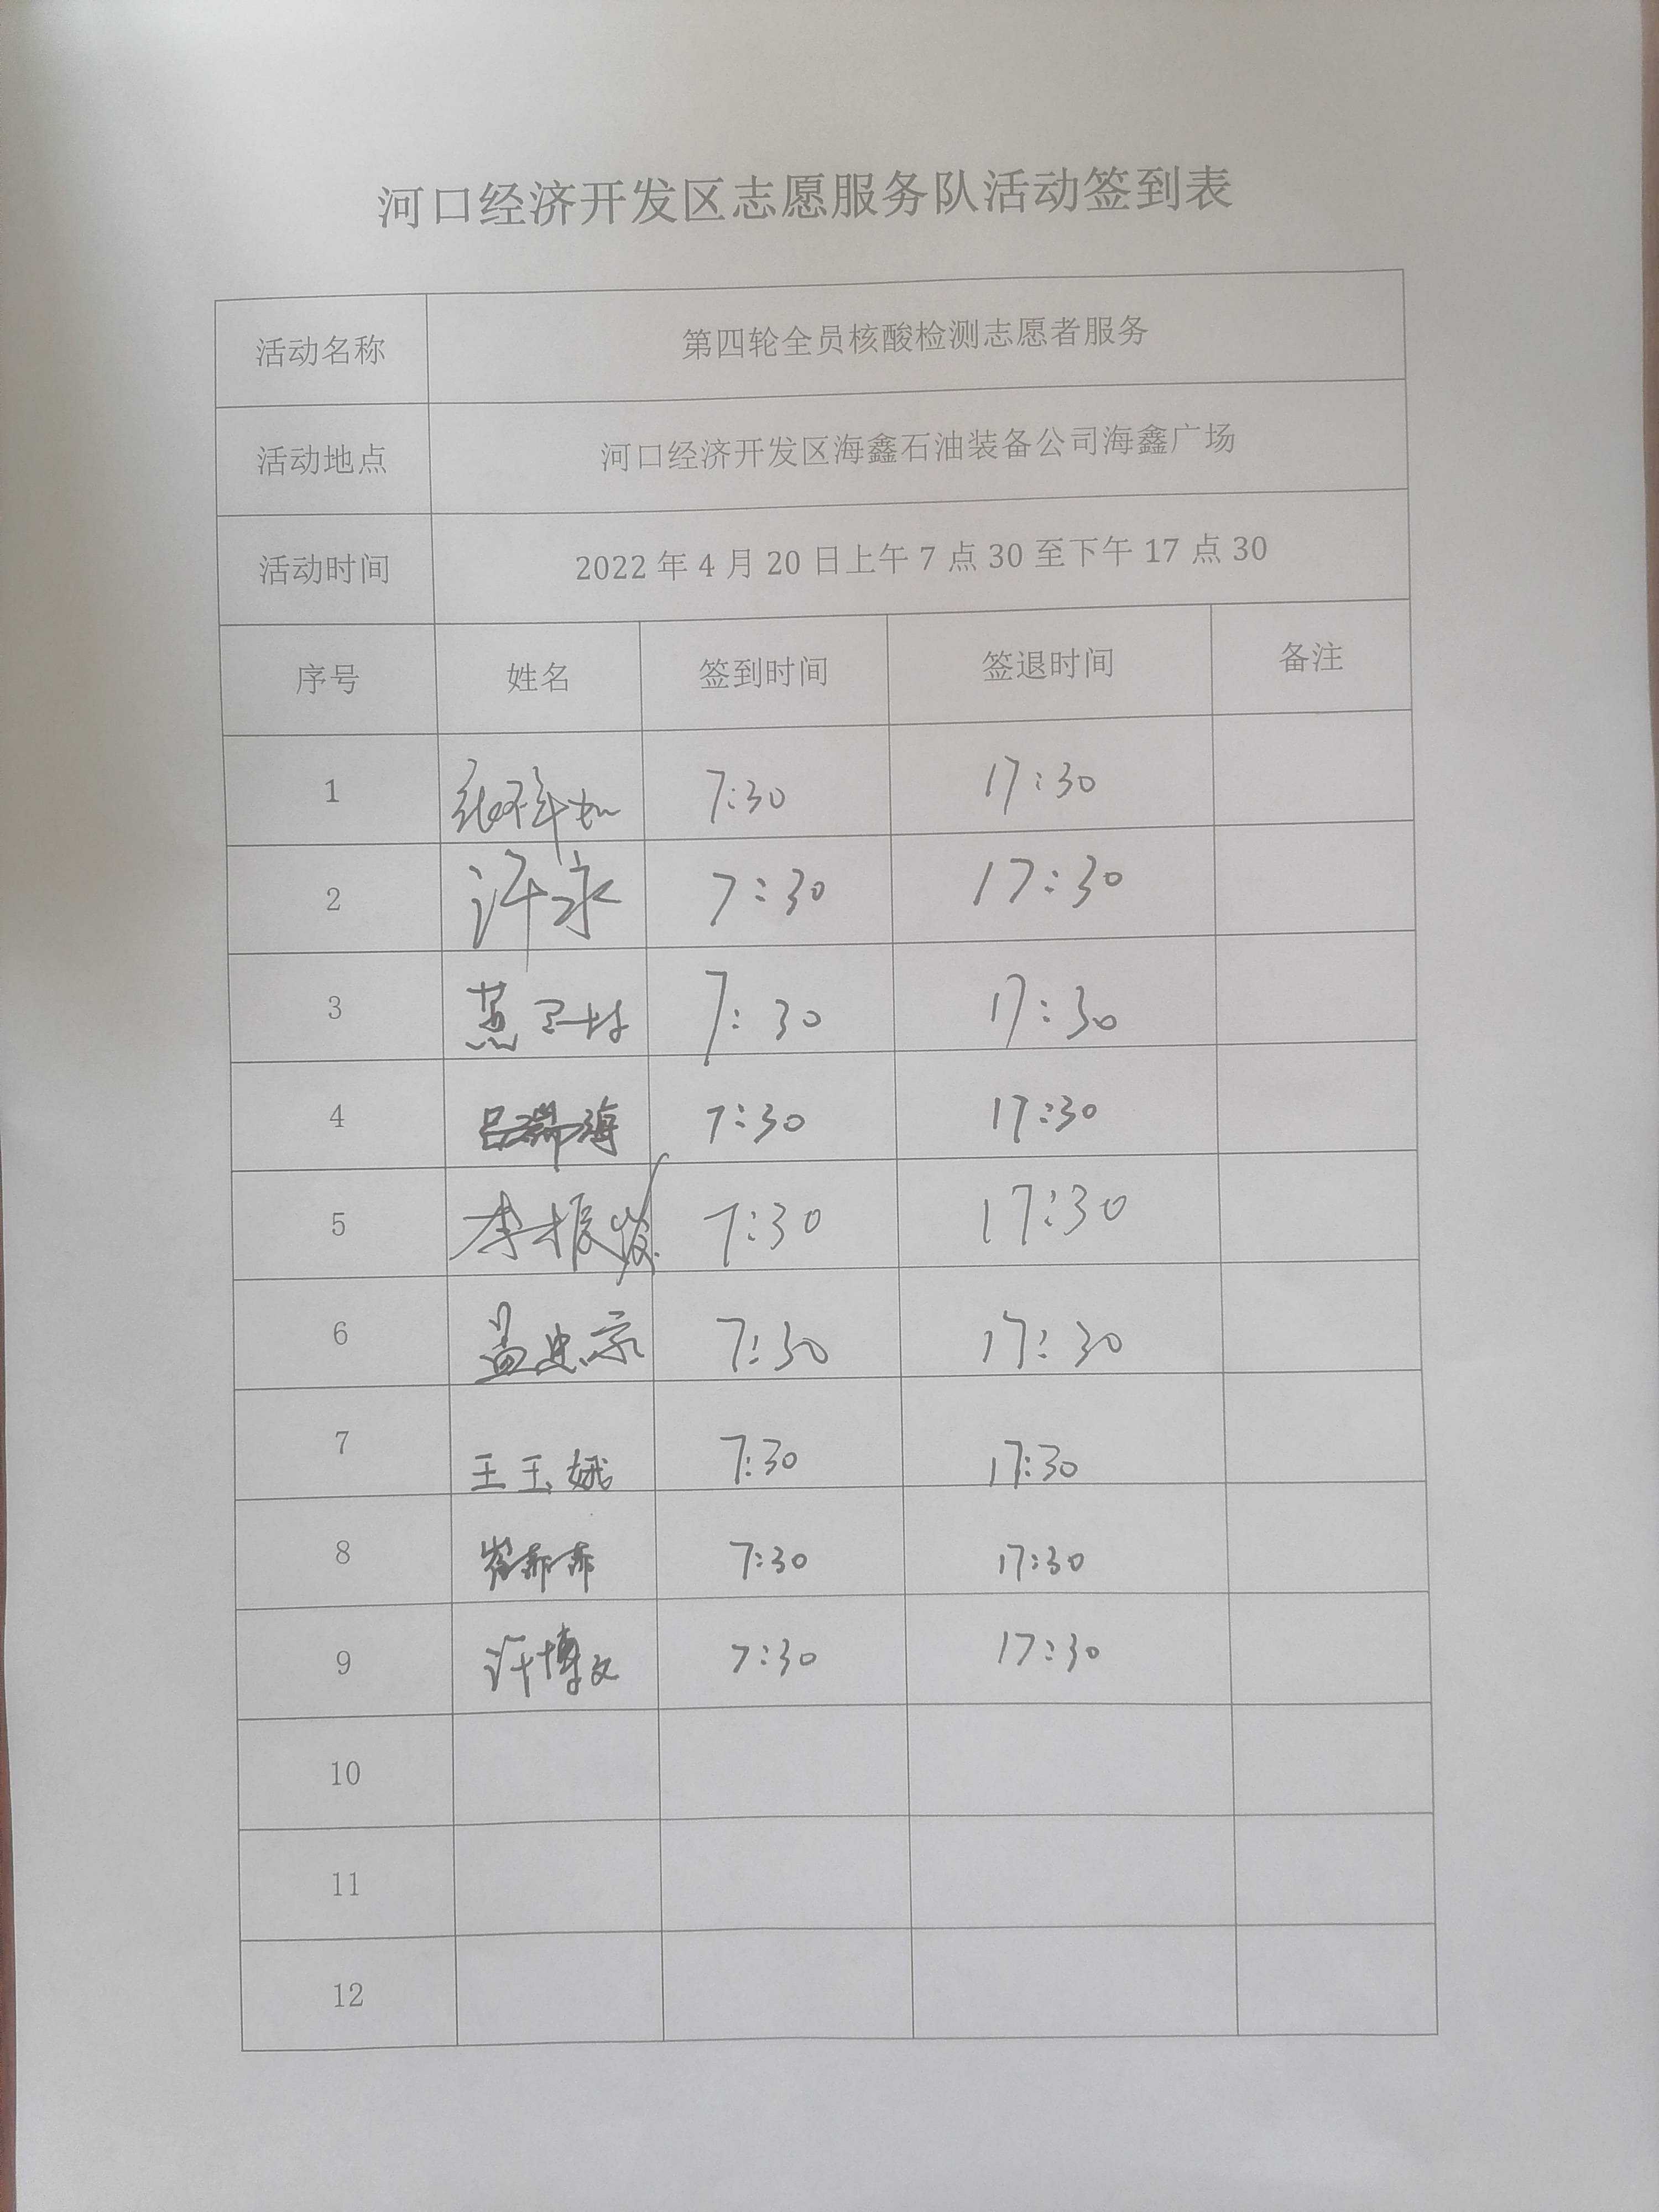 河口经济开发区志愿服务队活动签到表
活动名称 第四轮全员核酸检测志愿者服务
活动地点 河口经济开发区海鑫石油装备公司海鑫广场
活动时间 2022年4月20日上午7点30至下午17点30
序号 姓名 签到时间 签退时间 备注
1 7:30 17:30
2 许永 7:30 17:30
3 7:30 17:30
4 吕瑞海 7:30 17:30
5 李振发 7:30 17:30
6 孟忠宗 7:30 17:30
7 王玉娥 7:30 17:30
8 7:30 17:30
9 许博文 7:30 17:30
10
11
12